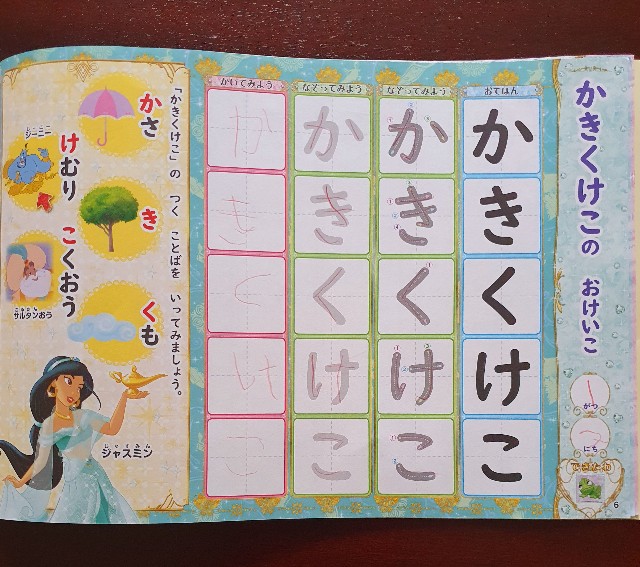 かきくけこの おけいこ
がつ
にち
できたね
6
おてほん
なぞってみよう
なぞってみよう
かいてみよう
か
か
か
か
き
き
き
き
く
く
く
く
け
け
け
け
こ
こ
こ
こ
「かきくけこ」の つく ことばを いってみましょう。
かさ
き
くも
けむり
ジーニー
こくおう
サルタンおう
ジャスミン